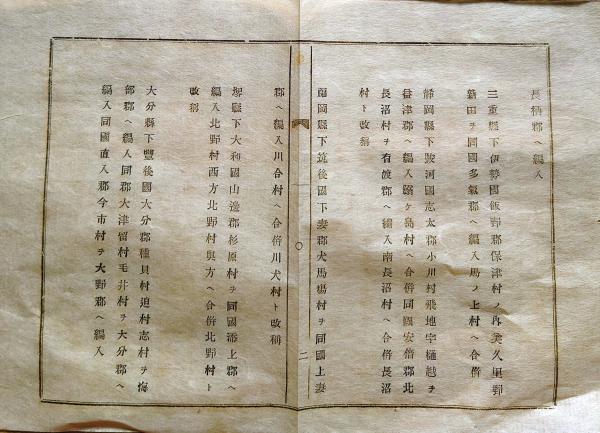 長柄郡ヘ編入
三重縣下伊勢國飯野郡保津村ノ内美久里野
新田ヲ同國多氣郡ヘ編入馬ノ上村ヘ合併
靜岡縣下駿河國志太郡小川村飛地字樋越ヲ
益津郡ヘ編入鰯ヶ島村ヘ合併同國安倍郡北
長沼村ヲ有渡郡ヘ編入南長沼村ヘ合併長沼
村ト改稱
福岡縣下筑後國下妻郡犬馬場村ヲ同國上妻
二
郡ヘ編入川合村ヘ合併川犬村ト改稱
堺縣下大和國山邊郡杉原村ヲ同國添上郡ヘ
編入北野村西方北野村奥方ヘ合併北野村ト
改稱
大分縣下豐後國大分郡種具村迫村志村ヲ海
部郡ヘ編入同郡大津留村毛井村ヲ大分郡ヘ
編入同國直入郡今市村ヲ大野郡ヘ編入